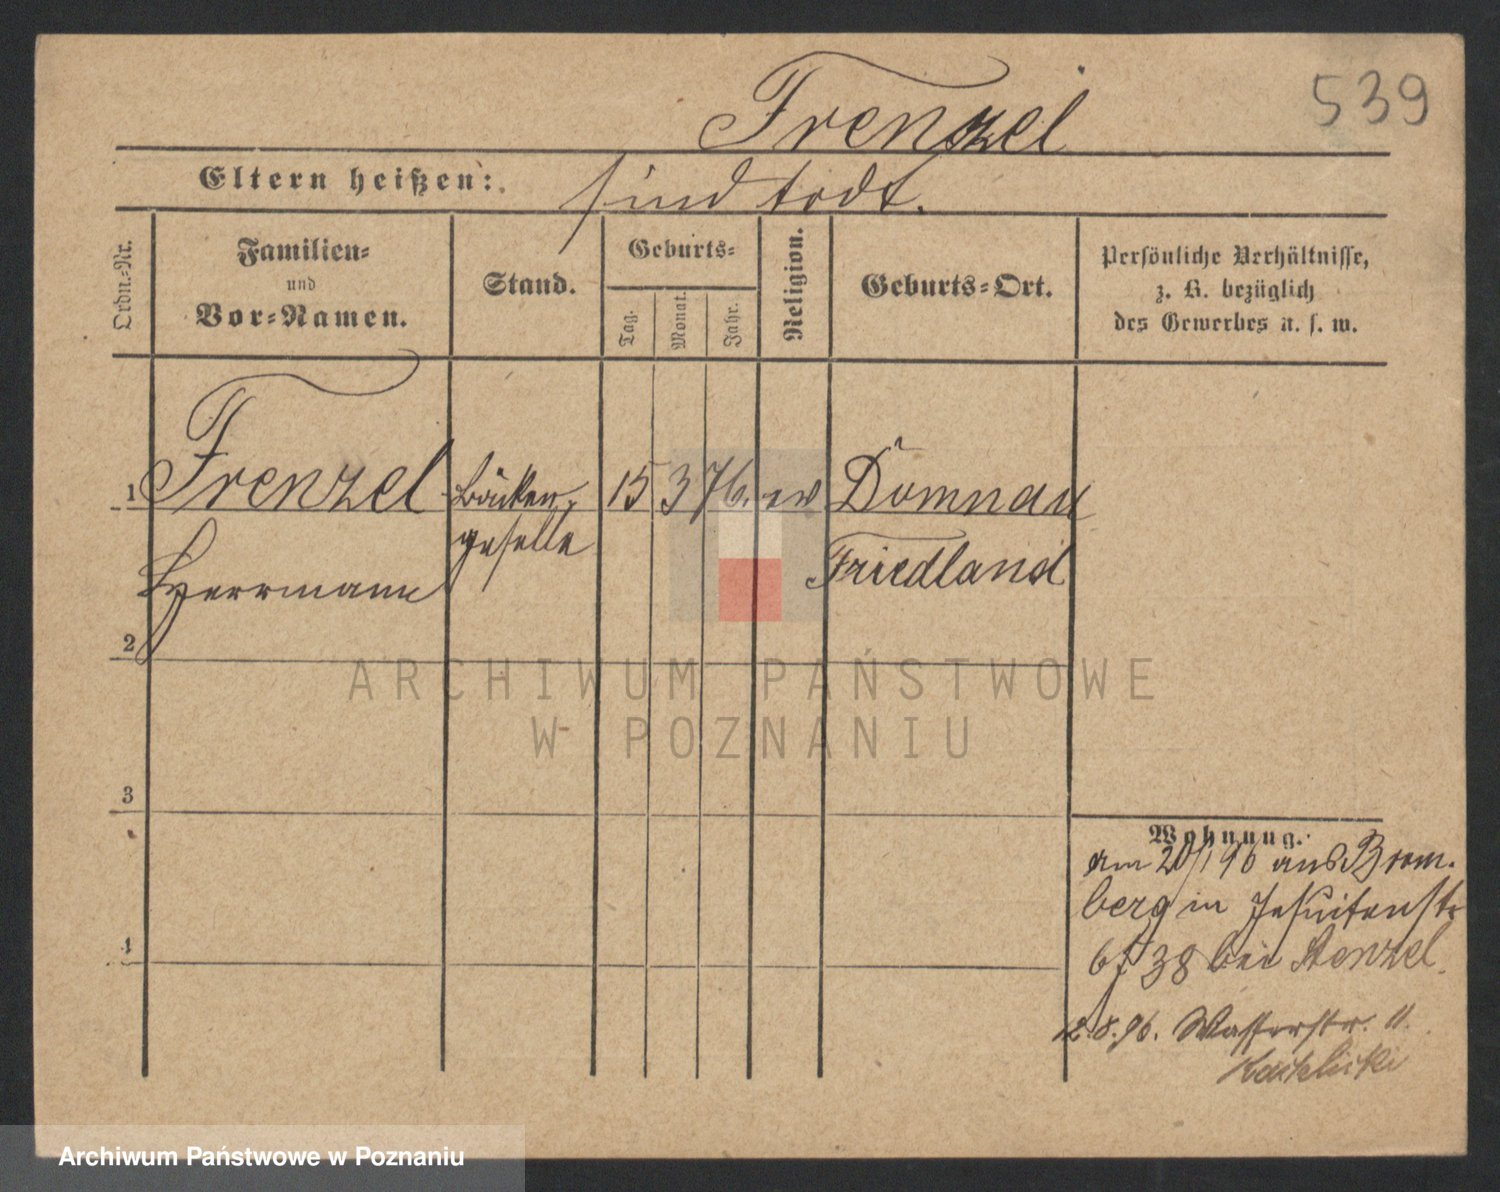 539
Frenzel
Eltern heißen:
sind todt.
Ordn.-Nr.
Familien-
und
Vor-Namen.
Stand.
Geburts-
Tag.
Monat.
Jahr.
Religion.
Geburts-Ort.
Persönliche Verhältnisse,
z. B. bezüglich
des Gewerbes u. s. w.
1 Frenzel Bäcker- 15 3 76. ev Domnau
geselle Friedland
Herrmann
2
3
4
Wohnung.
am 20/1 96 aus Brom-
berg in Jesuitenstr
6/ 38 bei Stenzel.
12.8.96. Wasserstr. 11.
ARCHIWUM PAŃSTWOWE
W POZNANIU
Archiwum Państwowe w Poznaniu